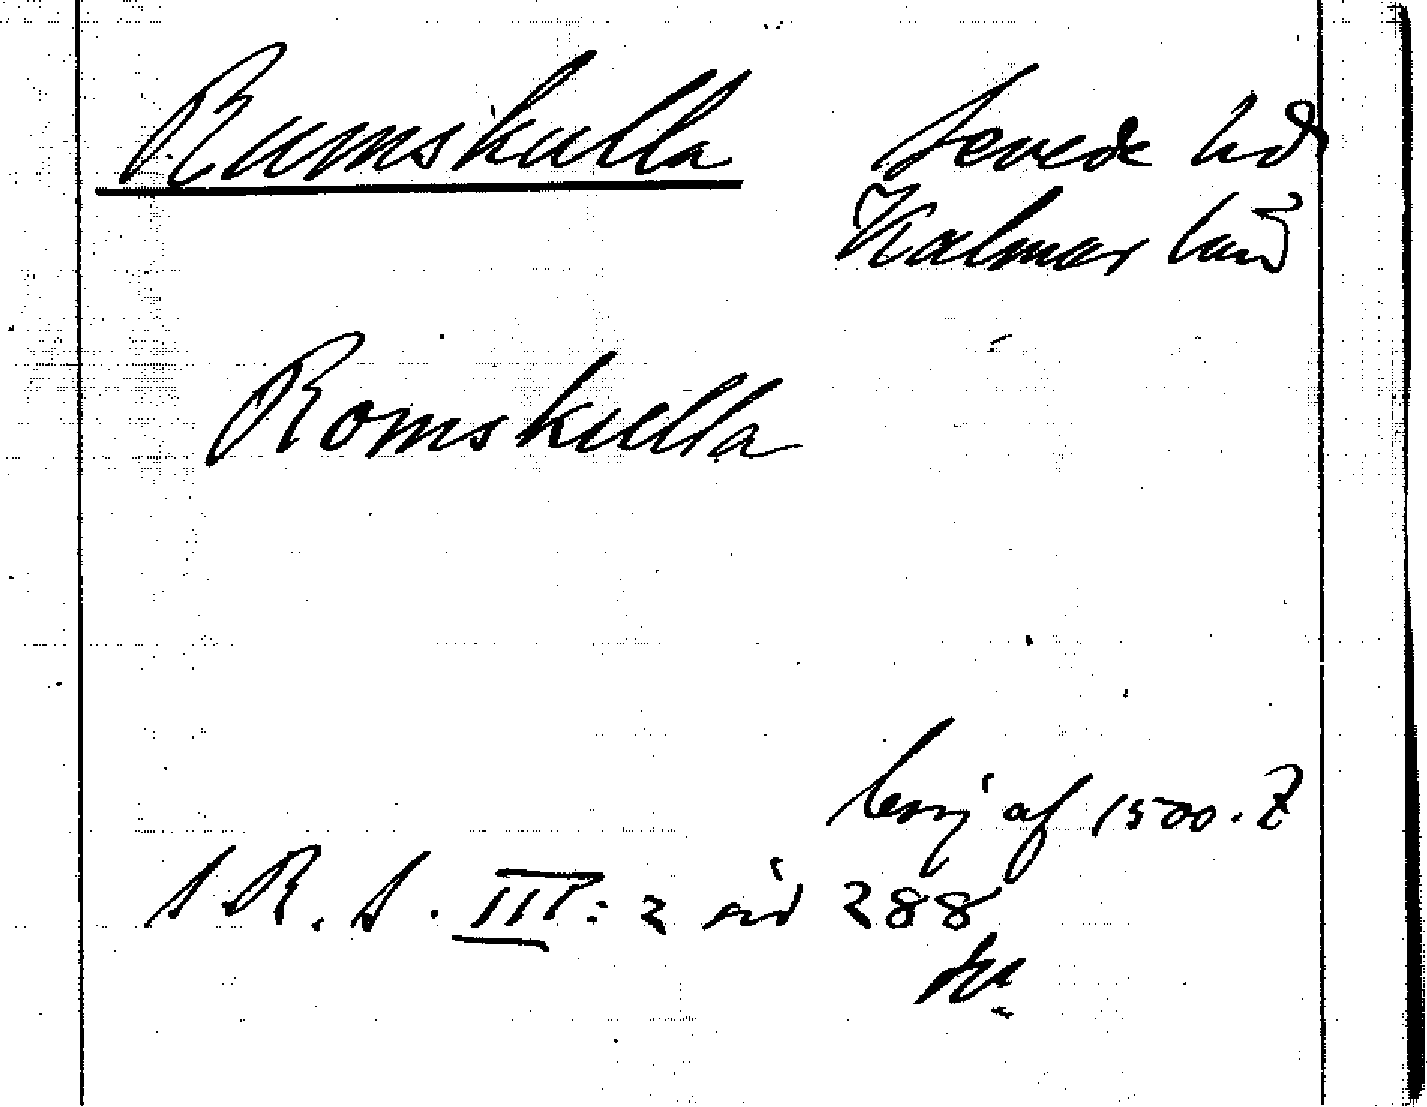 Rumskulla Sevede hd
Kalmar län
Romskulla
börj af 1500. t
S.R.S. III: 2 sid 288